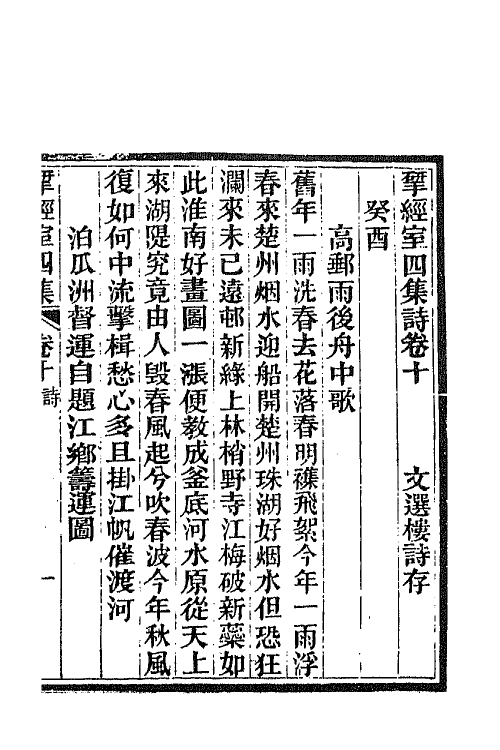 揅經室四集詩卷十　　文選樓詩存
癸酉
高郵雨後舟中歌
舊年一雨洗春去花落春明襍飛絮今年一雨浮
春來楚州烟水迎船開楚州珠湖好烟水但恐狂
瀾來未已遠邨新綠上林梢野寺江梅破新蘂如
此淮南好畫圖一漲便教成釜底河水原從天上
來湖隄究竟由人毀春風起兮吹春波今年秋風
復如何中流擊楫愁心多且掛江帆催渡河
泊瓜洲督運自題江鄉籌運圖
揅經室四集　卷十　詩　一